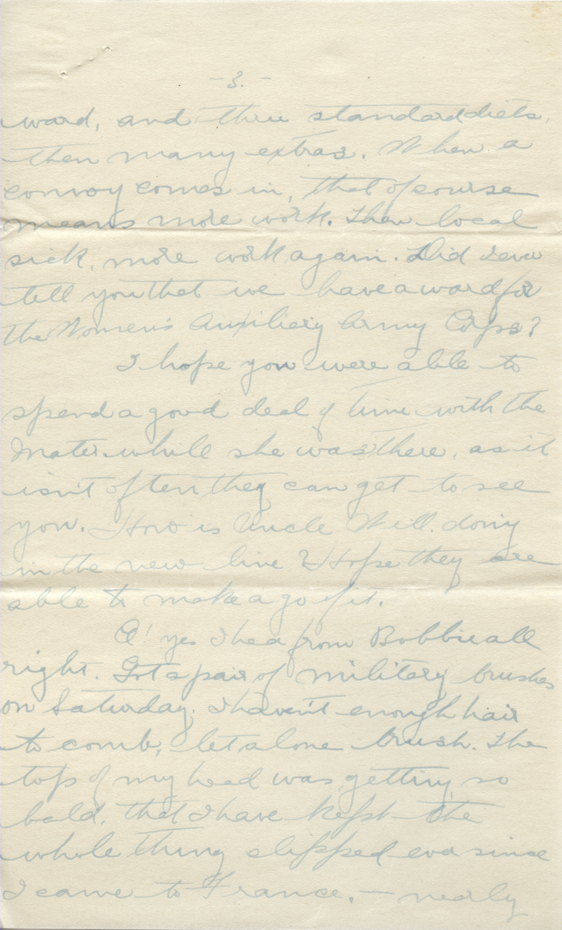 - 3. -
ward, and three standard diets,
then many extras. When a
convoy comes in, that of course
means more work. Then local
sick, more work again. Did I ever
tell you that we have a ward for
the Women's Auxiliary Army Corps?
I hope you were able to
spend a good deal of time with the
Mater while she was there, as it
isn't often they can get to see
you. How is Uncle Will doing
in the new line? Hope they are
able to make a go of it.
O' yes I hea from Bobbie all
right. Got a pair of military brushes
on Saturday. I haven't enough hair
to comb, let alone brush. The
top of my head was getting so
bald, that I have kept the
whole thing clipped ever since
I came to France, - nearly